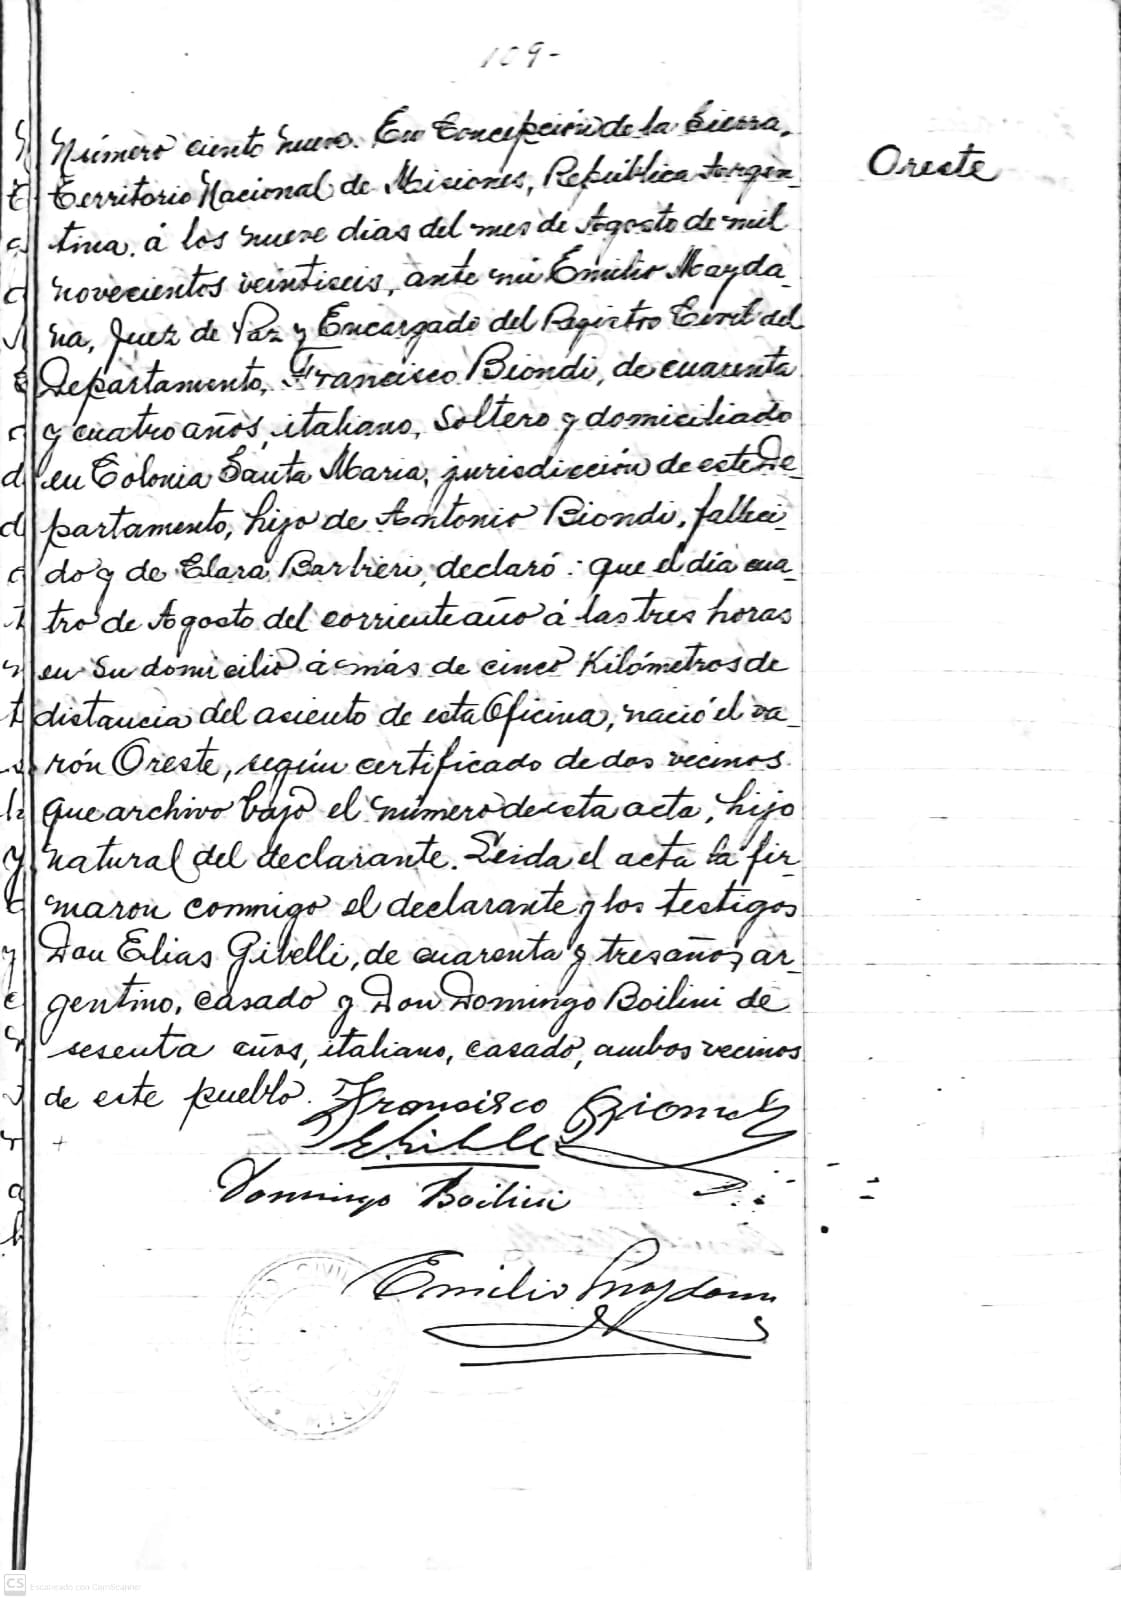 109-
Número ciento nueve. En Concepción de la Sierra,
Oreste
Territorio Nacional de Misiones, República Argen_
tina, á los nueve dias del mes de Agosto de mil
novecientos veintiseis, ante mi Emilio Mayda_
na, Juez de Paz y Encargado del Registro Civil del
Departamento, Francisco Biondi, de cuarenta
y cuatro años, italiano, soltero y domiciliado
en Colonia Santa Maria, jurisdicción de este De_
partamento, hijo de Antonio Biondi, falleci_
do y de Clara Barbieri, declaró: que el día cua_
tro de Agosto del corriente año á las tres horas
en su domicilio á más de cinco Kilómetros de
distancia del asiento de esta Oficina, nació el va_
rón Oreste, según certificado de dos vecinos
que archivo bajo el número de esta acta, hijo
natural del declarante. Leida el acta la fir_
maron conmigo el declarante y los testigos
Don Elias Gibelli, de cuarenta y tres años, ar_
gentino, casado y Don Domingo Boilini de
sesenta años, italiano, casado, ambos vecinos
de este pueblo. Francisco Biondi
Domingo Boilini
Emilio Maydana
CS Escaneado con CamScanner